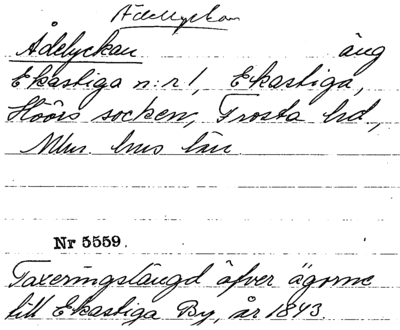 Ådelyckan
Ådelyckan äng
Ekastiga n:r 1, Ekastiga,
Höörs socken, Frosta hd,
Mlm. hus län.
Nr 5559.
Taxeringslängd öfver ägorne
till Ekastiga By, år 1843.